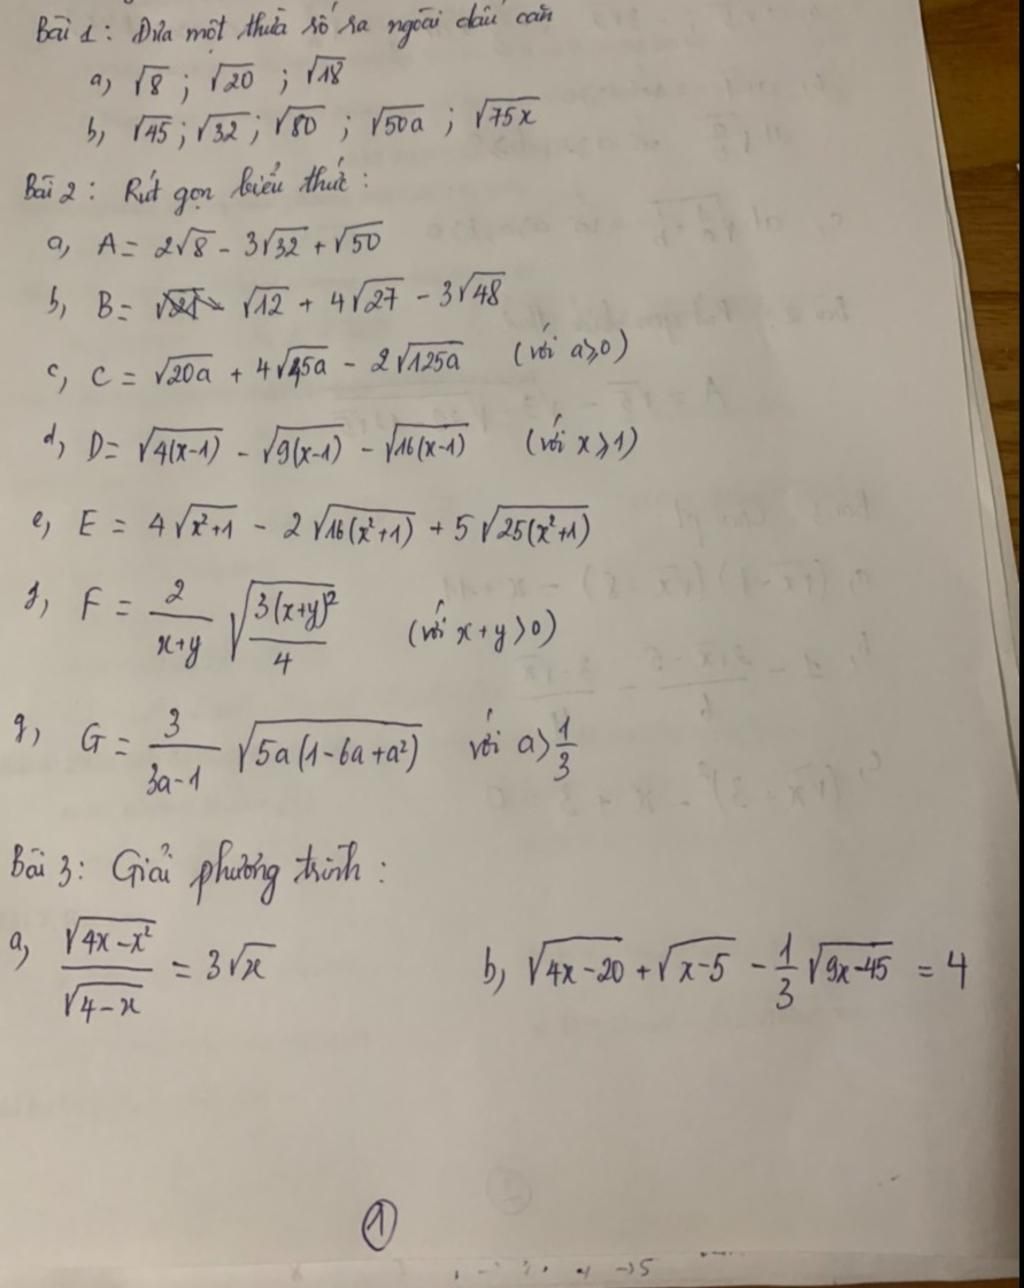 Bài 1: Đưa một thừa số ra ngoài dấu căn
a, √8 ; √20 ; √18
b, √45 ; √32 ; √80 ; √50a ; √75x
Bài 2: Rút gọn biểu thức :
a, A = 2√8 - 3√32 + √50
b, B = √12 + 4√27 - 3√48
c, C = √20a + 4√45a - 2√125a (với a⩾0)
d, D = √4(x-1) - √9(x-1) - √16(x-1) (với x⩾1)
e, E = 4√x²+1 - 2√16(x²+1) + 5√25(x²+1)
f, F = 2/(x+y) √(3(x+y)²/4) (với x+y>0)
g, G = 3/(3a-1) √5a(1-6a+a²) với a>1/3
Bài 3: Giải phương trình :
a, √4x-x² / √4-x = 3√x b, √4x-20 + √x-5 - 1/3 √9x-45 = 4
1